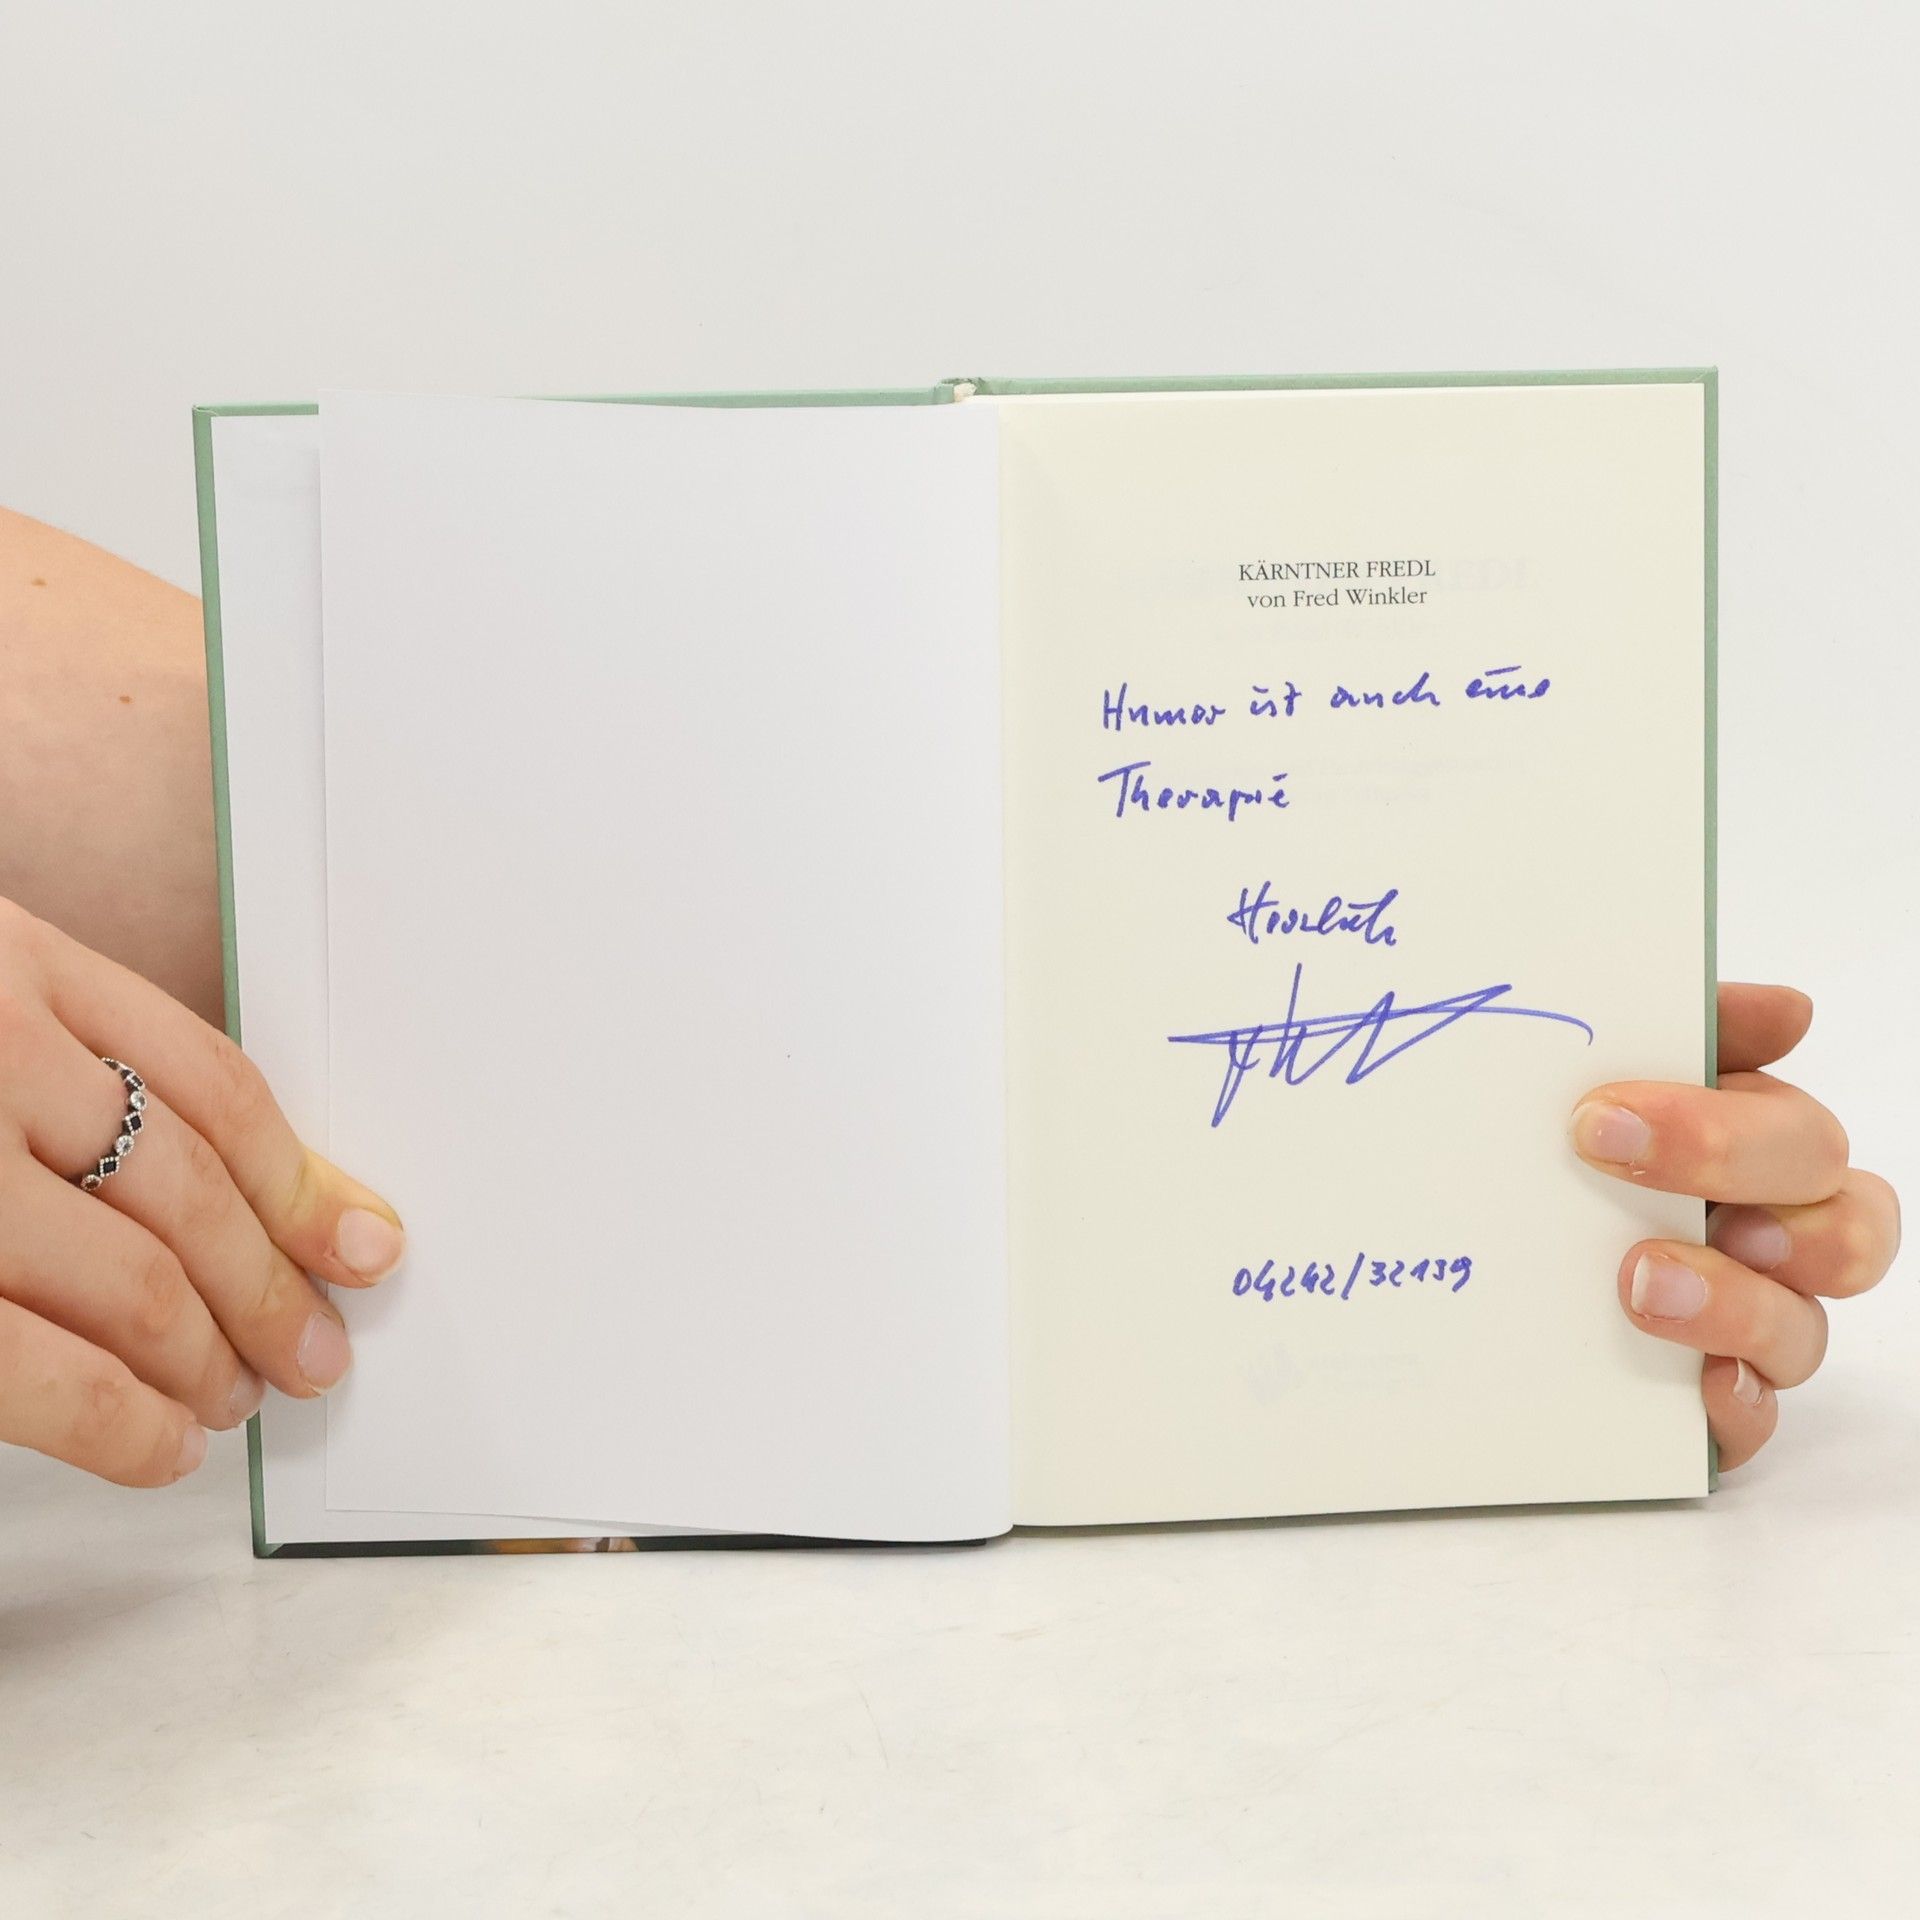 KÄRNTNER FREDL
von Fred Winkler
Humor ist auch eine
Therapie
Herzlich
04242/32139